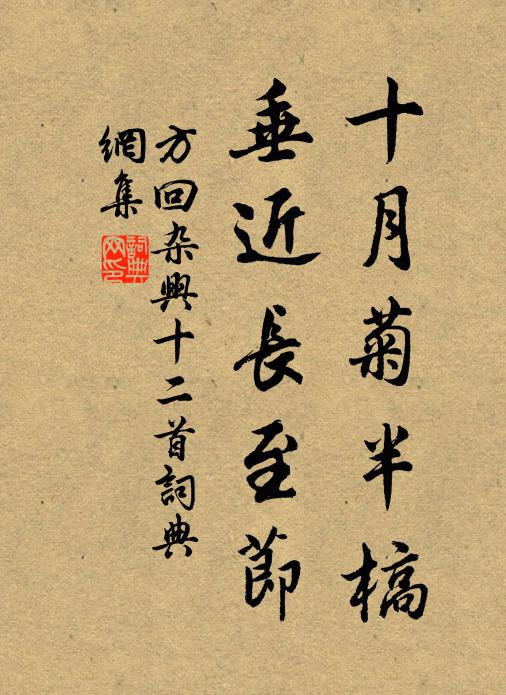 十月菊半槁
垂近長至節
方回杂興十二首詞典
網集
詞典
网印